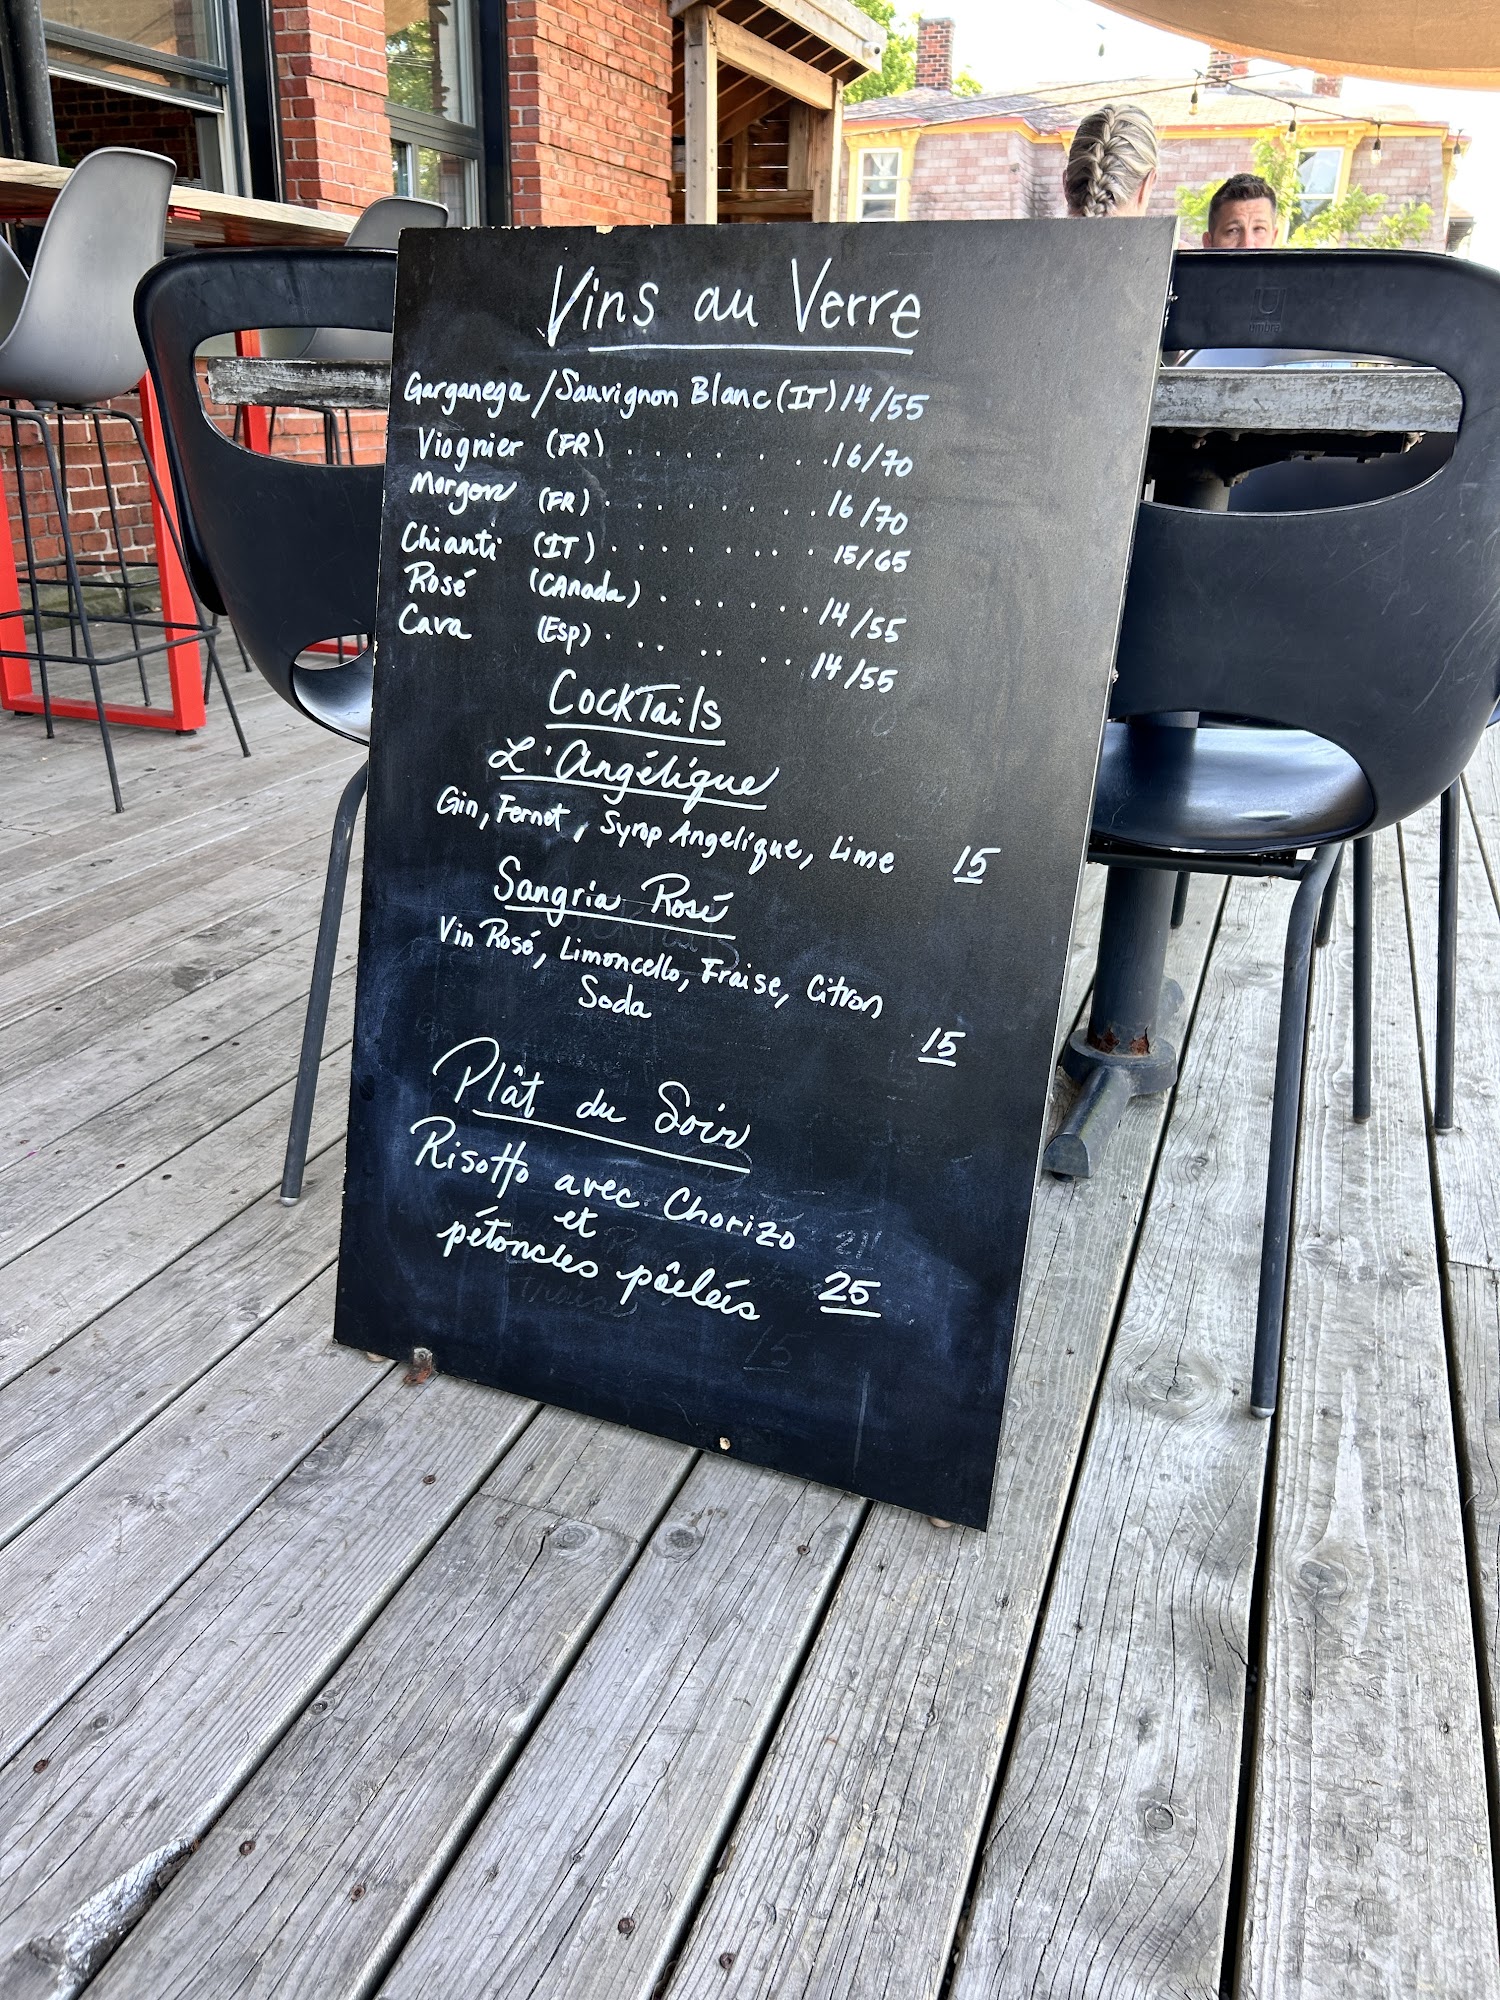 Vins au Verre
Garganega / Sauvignon Blanc (IT) 14/55
Viognier (FR) . . . . . . . . 16/70
Morgon (FR) . . . . . . . . 16/70
Chianti (IT) . . . . . . . . 15/65
Rosé (CAnada) . . . . . . . 14/55
Cava (Esp) . . . . . . . 14/55
CockTails
L'Angélique
Gin, Fernet, Syrop Angelique, Lime 15
Sangria Rosé
Vin Rosé, Limoncello, Fraise, Citron
Soda 15
Plât du Soir
Risotto avec Chorizo
et
pétoncles pôêlées 25
umbra